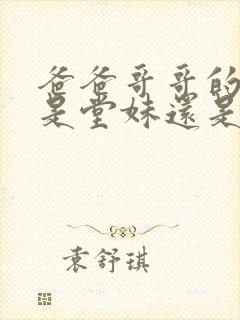 爸爸哥哥的
是堂妹還是
袁舒琪